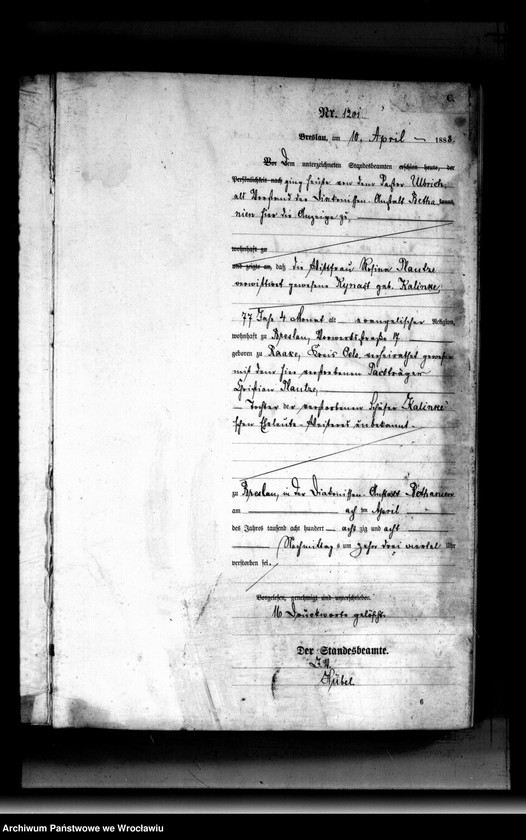 C.
Nr. 1201
Breslau, am 10. April 1888.
Vor dem unterzeichneten Standesbeamten erschien heute, der
Persönlichkeit nach ging heute von dem Pastor Ulbrich,
als Vorstand der Diakonissen-Anstalt Betha-
nien hier die Anzeige zu,
wohnhaft zu
und zeigte an, daß die Wittfrau Rosina Plautze
verwittwet gewesene Kynast geb. Kalinke,
77 Jahr 4 Monat alt evangelischer Religion,
wohnhaft zu Breslau, Vorwerksstraße 17
geboren zu Raake, Kreis Oels, verheirathet gewesen
mit dem hier verstorbenen Packträger
Christian Plautze,
Tochter der verstorbenen Schäfer Kalinke'
schen Eheleute. Weiteres unbekannt.
zu Breslau, in der Diakonissen-Anstalt Bethanien
am acht ten April
des Jahres tausend acht hundert acht zig und acht
Nachmittags um zehn drei viertel Uhr
verstorben sei.
Vorgelesen, genehmigt und unterschrieben.
16 Druckworte gelöscht.
Der Standesbeamte.
I.V.
Hübel
6
Archiwum Państwowe we Wrocławiu